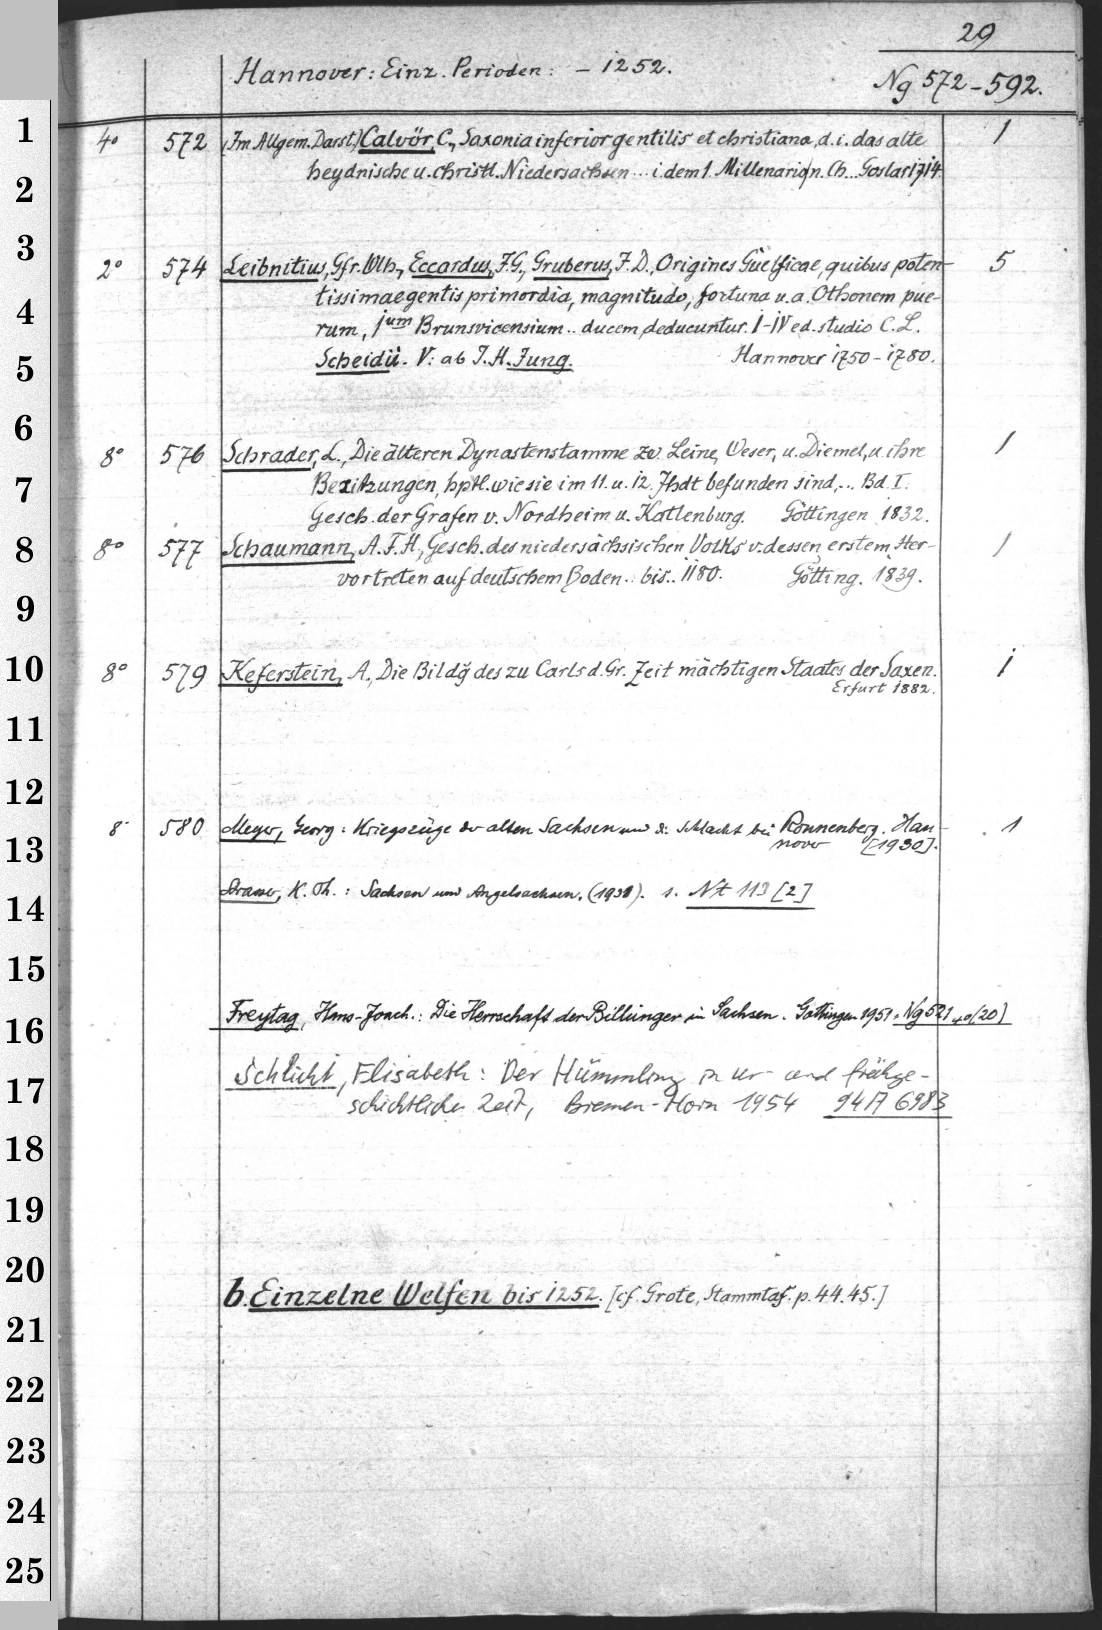 29
Hannover: Einz. Perioden: – 1252.
Ng 572–592.
1
2
3
4
5
6
7
8
9
10
11
12
13
14
15
16
17
18
19
20
21
22
23
24
25
4° 572 (Im Allgem. Darst.) Calvör, C., Saxonia inferior gentilis et christiana, d. i. das alte 1
heydnische u. christl. Niedersachsen... i. dem 1. Millenario n. Ch... Goslar 1714.
2° 574 Leibnitius, Gfr. Wlh., Eccardus, J. G., Gruberus, J. D., Origines Guelficae, quibus poten- 5
tissimae gentis primordia, magnitudo, fortuna u. a. Othonem pue-
rum, jum Brunsvicensium.. ducem, deducuntur. I–IV ed. studio C. L.
Scheidii. V: ab J. H. Jung. Hannover 1750–1780.
8° 576 Schrader, L., Die älteren Dynastenstamme zw. Leine, Weser, u. Diemel, u. ihre 1
Besitzungen, hptl. wie sie im 11. u. 12. Jhdt befunden sind,... Bd. I.
Gesch. der Grafen v. Nordheim u. Katlenburg. Göttingen 1832.
8° 577 Schaumann, A. F. H., Gesch. des niedersächsischen Volks v. dessen erstem Her- 1
vortreten auf deutschem Boden.. bis.. 1180. Götting. 1839.
8° 579 Keferstein, A., Die Bildg des zu Carls d. Gr. Zeit mächtigen Staates der Saxen. 1
Erfurt 1882.
8° 580 Meyer, Georg: Kriegszüge der alten Sachsen und die Schlacht bei Ronnenberg. Han- 1
nover [1930].
K. Th.: Sachsen und Angelsachsen. (1931). s. Nt 113 [2]
Freytag, Hans-Joach.: Die Herrschaft der Billunger in Sachsen. Göttingen 1951. Ng 521 40 (20)
Schlicht, Elisabeth: Der Hümmling in ur- und frühge-
schichtlicher Zeit, Bremen-Horn 1954 94 A 6983
b. Einzelne Welfen bis 1252. [cf. Grote, Stammtaf. p. 44. 45.]